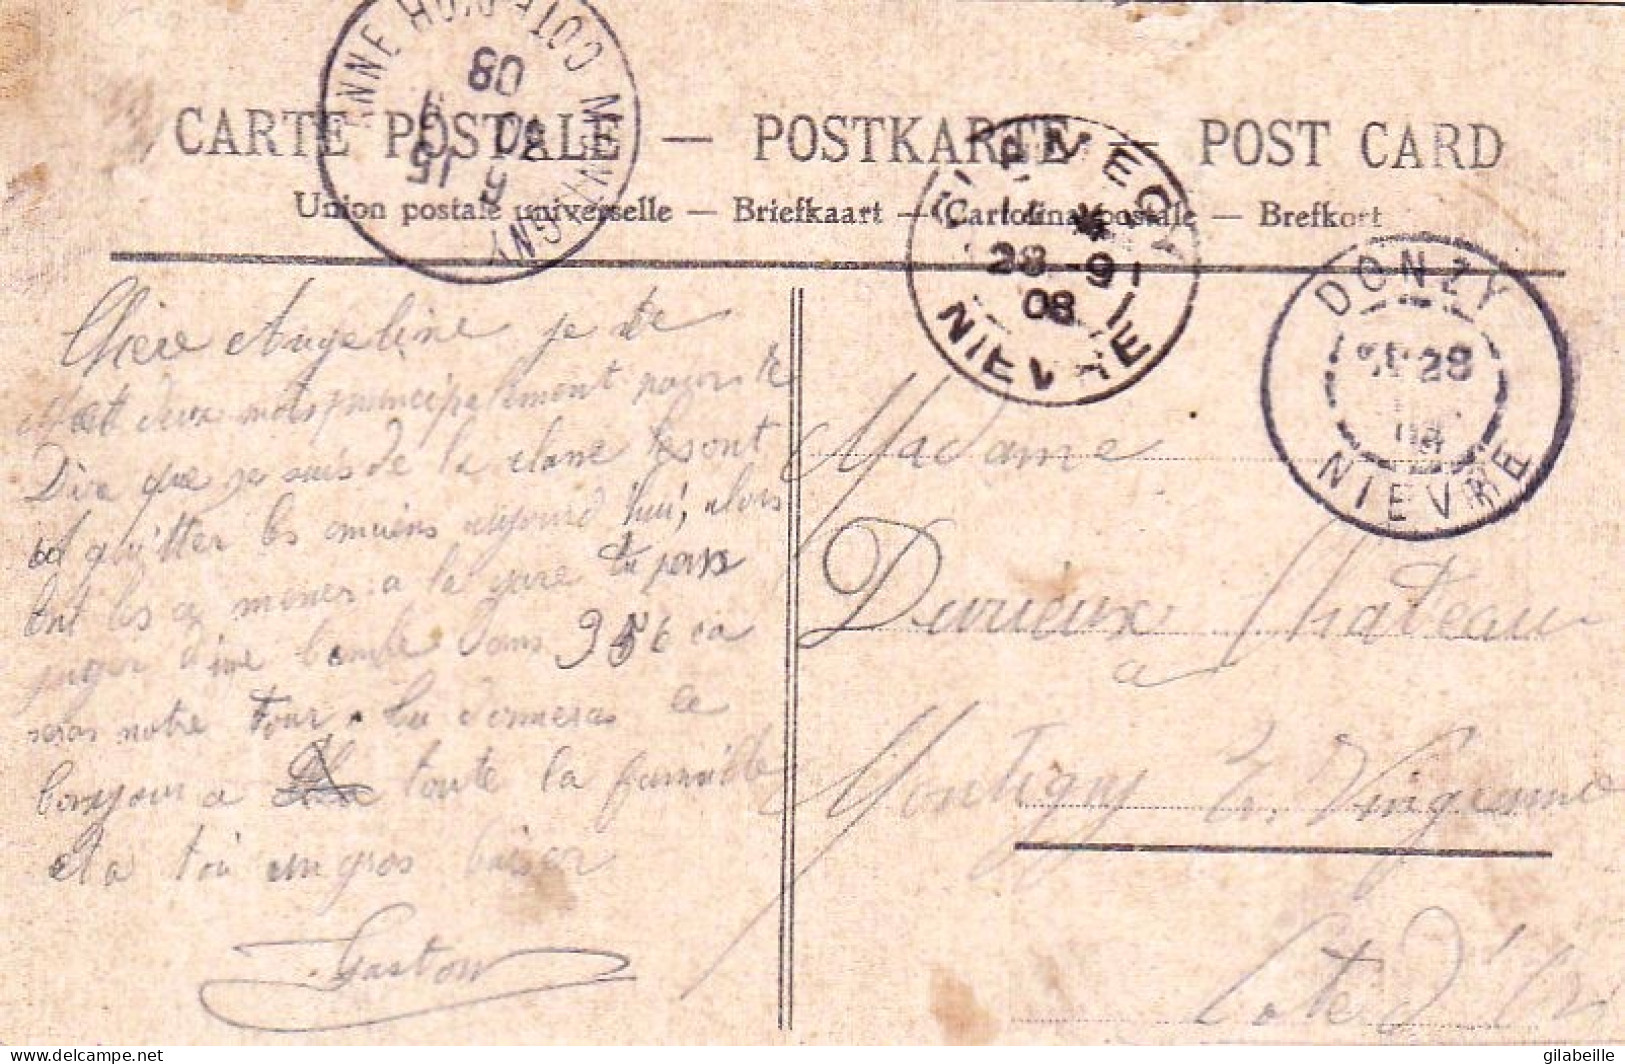 CARTE POSTALE — POSTKARTE — POST CARD
Union postale universelle — Briefkaart — Cartolina postale — Brefkort
MONTIGNY
COTE-D'OR
15 9
08
CLAMECY
28 -9
08
NIEVRE
DONZY
28
08
NIEVRE
Chère Angeline je te
deux mots principalement pour te
Dire que je suis de la classe
quitter les anciens aujourd'hui, alors
ont les a mener a la gare tu peus
juger d'une bombe dans 356 ca
seras notre Tour. tu donneras le
bonjour a toute la famille
et a toi un gros baiser
Gaston
Madame
Durieux Château
a
Montigny Vingeanne
Cote d'Or
gilabeille